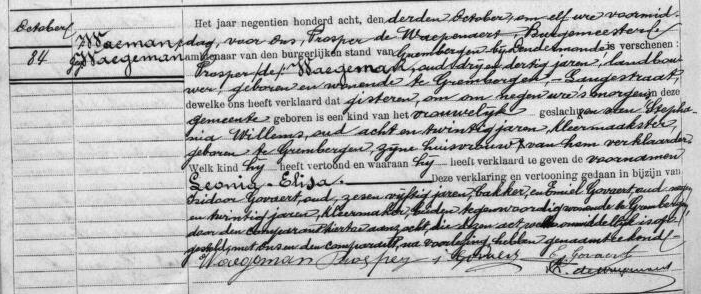 October
84
Waeman
Waegeman
Het jaar negentien honderd acht, den derden October, om elf ure voormid-
dag, voor Ons, Prosper de Waepenaert, Burgemeester
ambtenaar van den burgerlijken stand van Grembergen bij Dendermonde is verschenen:
Prosper Waegeman, oud drij en dertig jaren, landbou-
wer, geboren en wonende te Grembergen, Langestraat
dewelke ons heeft verklaard dat gisteren, om negen ure 's morgens in deze
gemeente geboren is een kind van het vrouwelijk geslacht, van Stepha-
nia Willems, oud acht en twintig jaren, kleermaakster,
geboren te Grembergen, zijne huisvrouw, van hem verklaarder.
Welk kind hij heeft vertoond en waaraan hij heeft verklaard te geven de voornamen
Leonia-Elisa. Deze verklaring en vertooning gedaan in bijzijn van
Isidoor Govaert, oud zes en vijftig jaren, bakker, en Emiel Govaert, oud negen
en twintig jaren, kleermaker, beiden wonende te Grembergen,
door den comparant hiertoe aanzocht, die dezen act, onmiddellijk is opge-
steld, met ons en den comparant, na voorlezing, hebben genaamteekend.
Waegeman Prosper I Govaers E Govaert